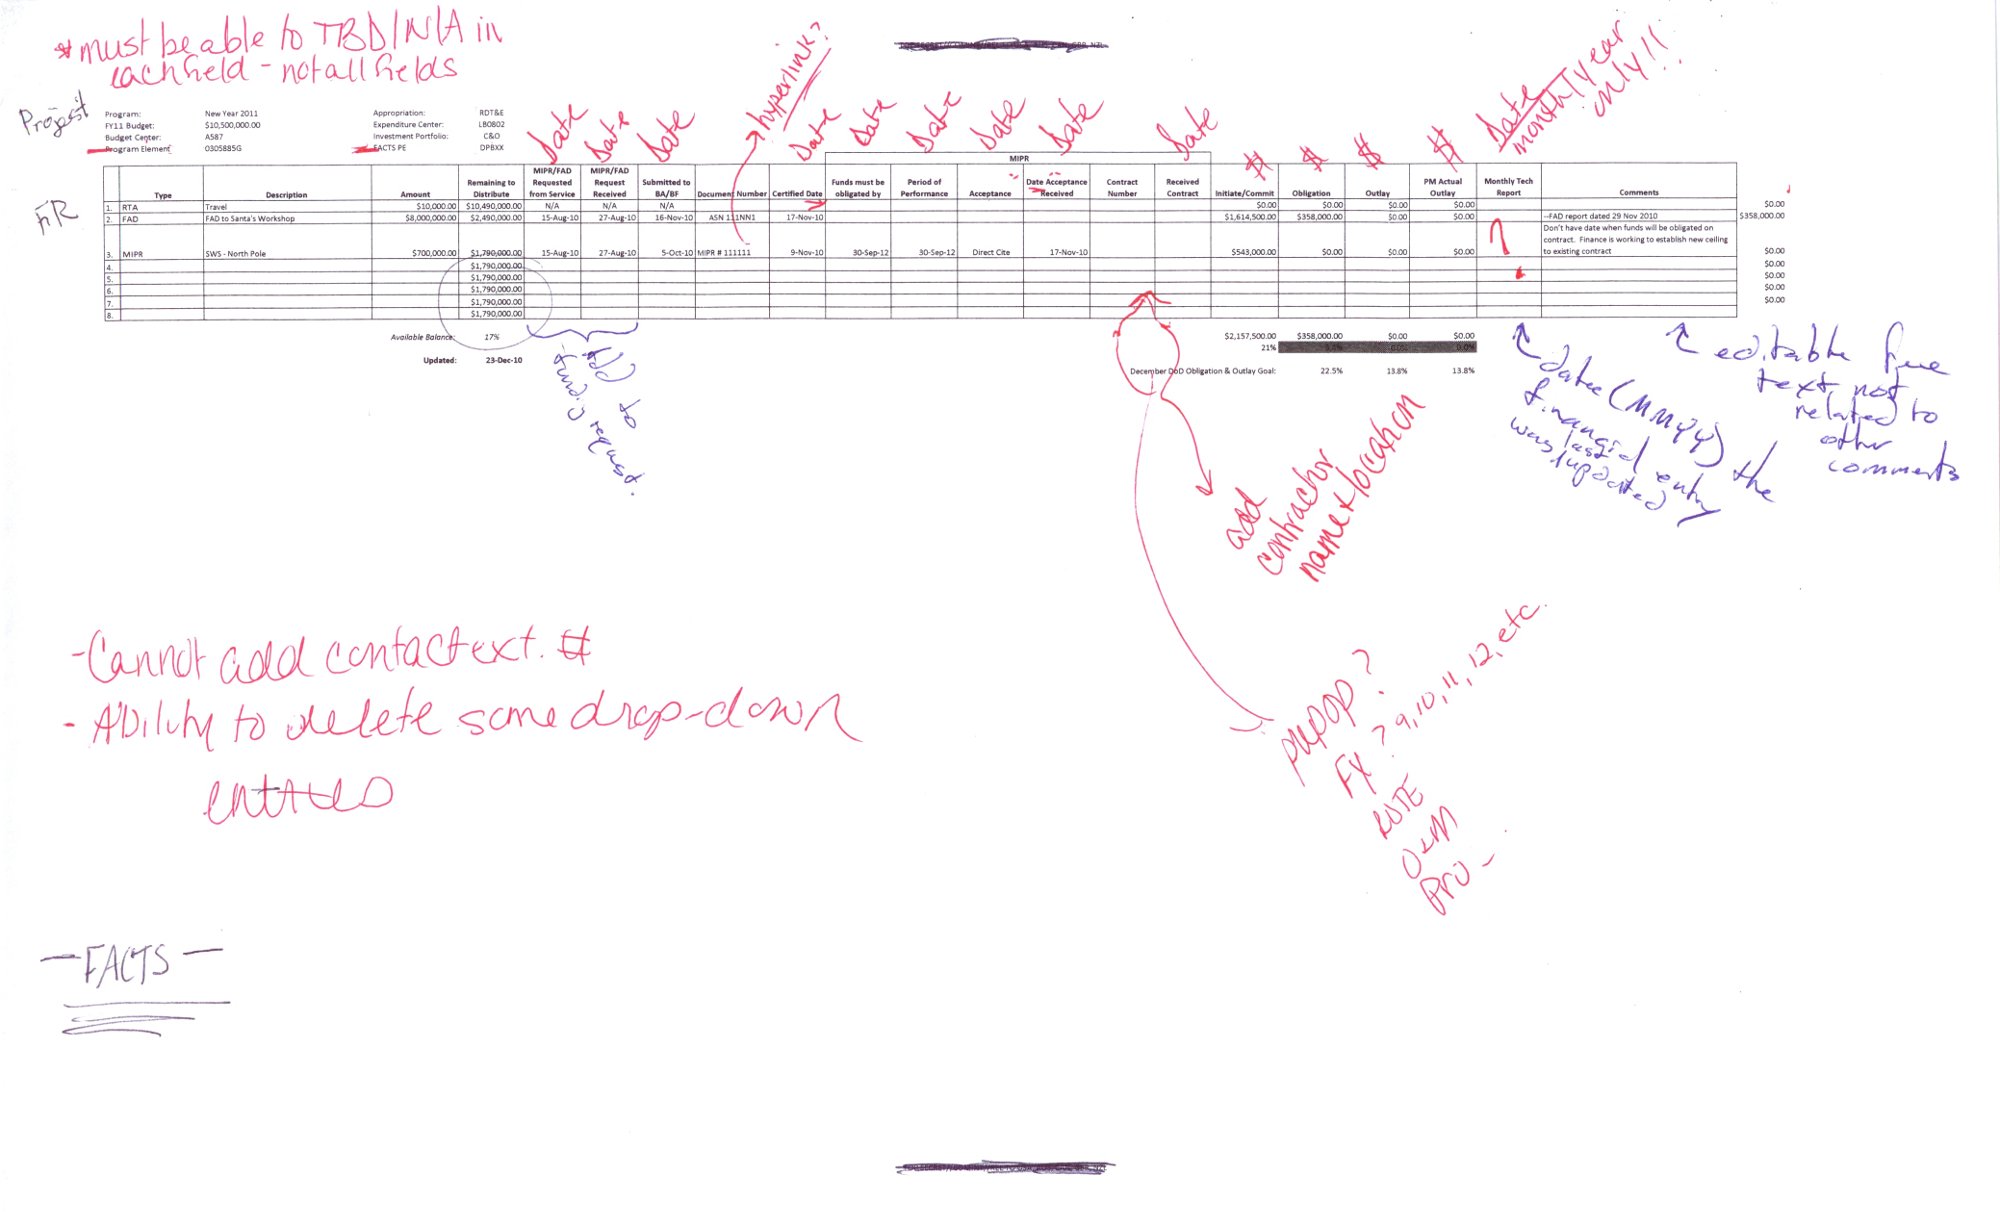 *must be able to TBD/N/A in
each field - not all fields
Project
Program: New Year 2011 Appropriation: RDT&E
FY11 Budget: $10,500,000.00 Expenditure Center: LB0802
Budget Center: A587 Investment Portfolio: C&O
Program Element 0305885G FACTS PE DPBXX
Date Date Date hyperlink? Date Date Date Date Date Date # $ $ $ Date
month/year
only!!
FR
MIPR
Type Description Amount Remaining to Distribute MIPR/FAD Requested from Service MIPR/FAD Request Received Submitted to BA/BF Document Number Certified Date Funds must be obligated by Period of Performance Acceptance Date Acceptance Received Contract Number Received Contract Initiate/Commit Obligation Outlay PM Actual Outlay Monthly Tech Report Comments
1. RTA Travel $10,000.00 $10,490,000.00 N/A N/A N/A $0.00 $0.00 $0.00 $0.00 $0.00
2. FAD FAD to Santa's Workshop $8,000,000.00 $2,490,000.00 15-Aug-10 27-Aug-10 16-Nov-10 ASN 111NN1 17-Nov-10 $1,614,500.00 $358,000.00 $0.00 $0.00 --FAD report dated 29 Nov 2010 $358,000.00
Don't have date when funds will be obligated on
contract. Finance is working to establish new ceiling
3. MIPR SWS - North Pole $700,000.00 $1,790,000.00 15-Aug-10 27-Aug-10 5-Oct-10 MIPR # 111111 9-Nov-10 30-Sep-12 30-Sep-12 Direct Cite 17-Nov-10 $543,000.00 $0.00 $0.00 $0.00 to existing contract $0.00
4. $1,790,000.00 $0.00
5. $1,790,000.00 $0.00
6. $1,790,000.00 $0.00
7. $1,790,000.00 $0.00
8. $1,790,000.00
Available Balance: 17% $2,157,500.00 $358,000.00 $0.00 $0.00
21%
Updated: 23-Dec-10
December DoD Obligation & Outlay Goal: 22.5% 13.8% 13.8%
Add to
funding request.
date (MMYY) the
financial entry
was last
updated
editable free
text not
related to
other
comments
add
contractor
name & location
-Cannot add contact ext. #
- Ability to delete some drop-down
entries
prepop?
FY? 9, 10, 11, 12, etc.
RDTE
O&M
Pro -
- FACTS -